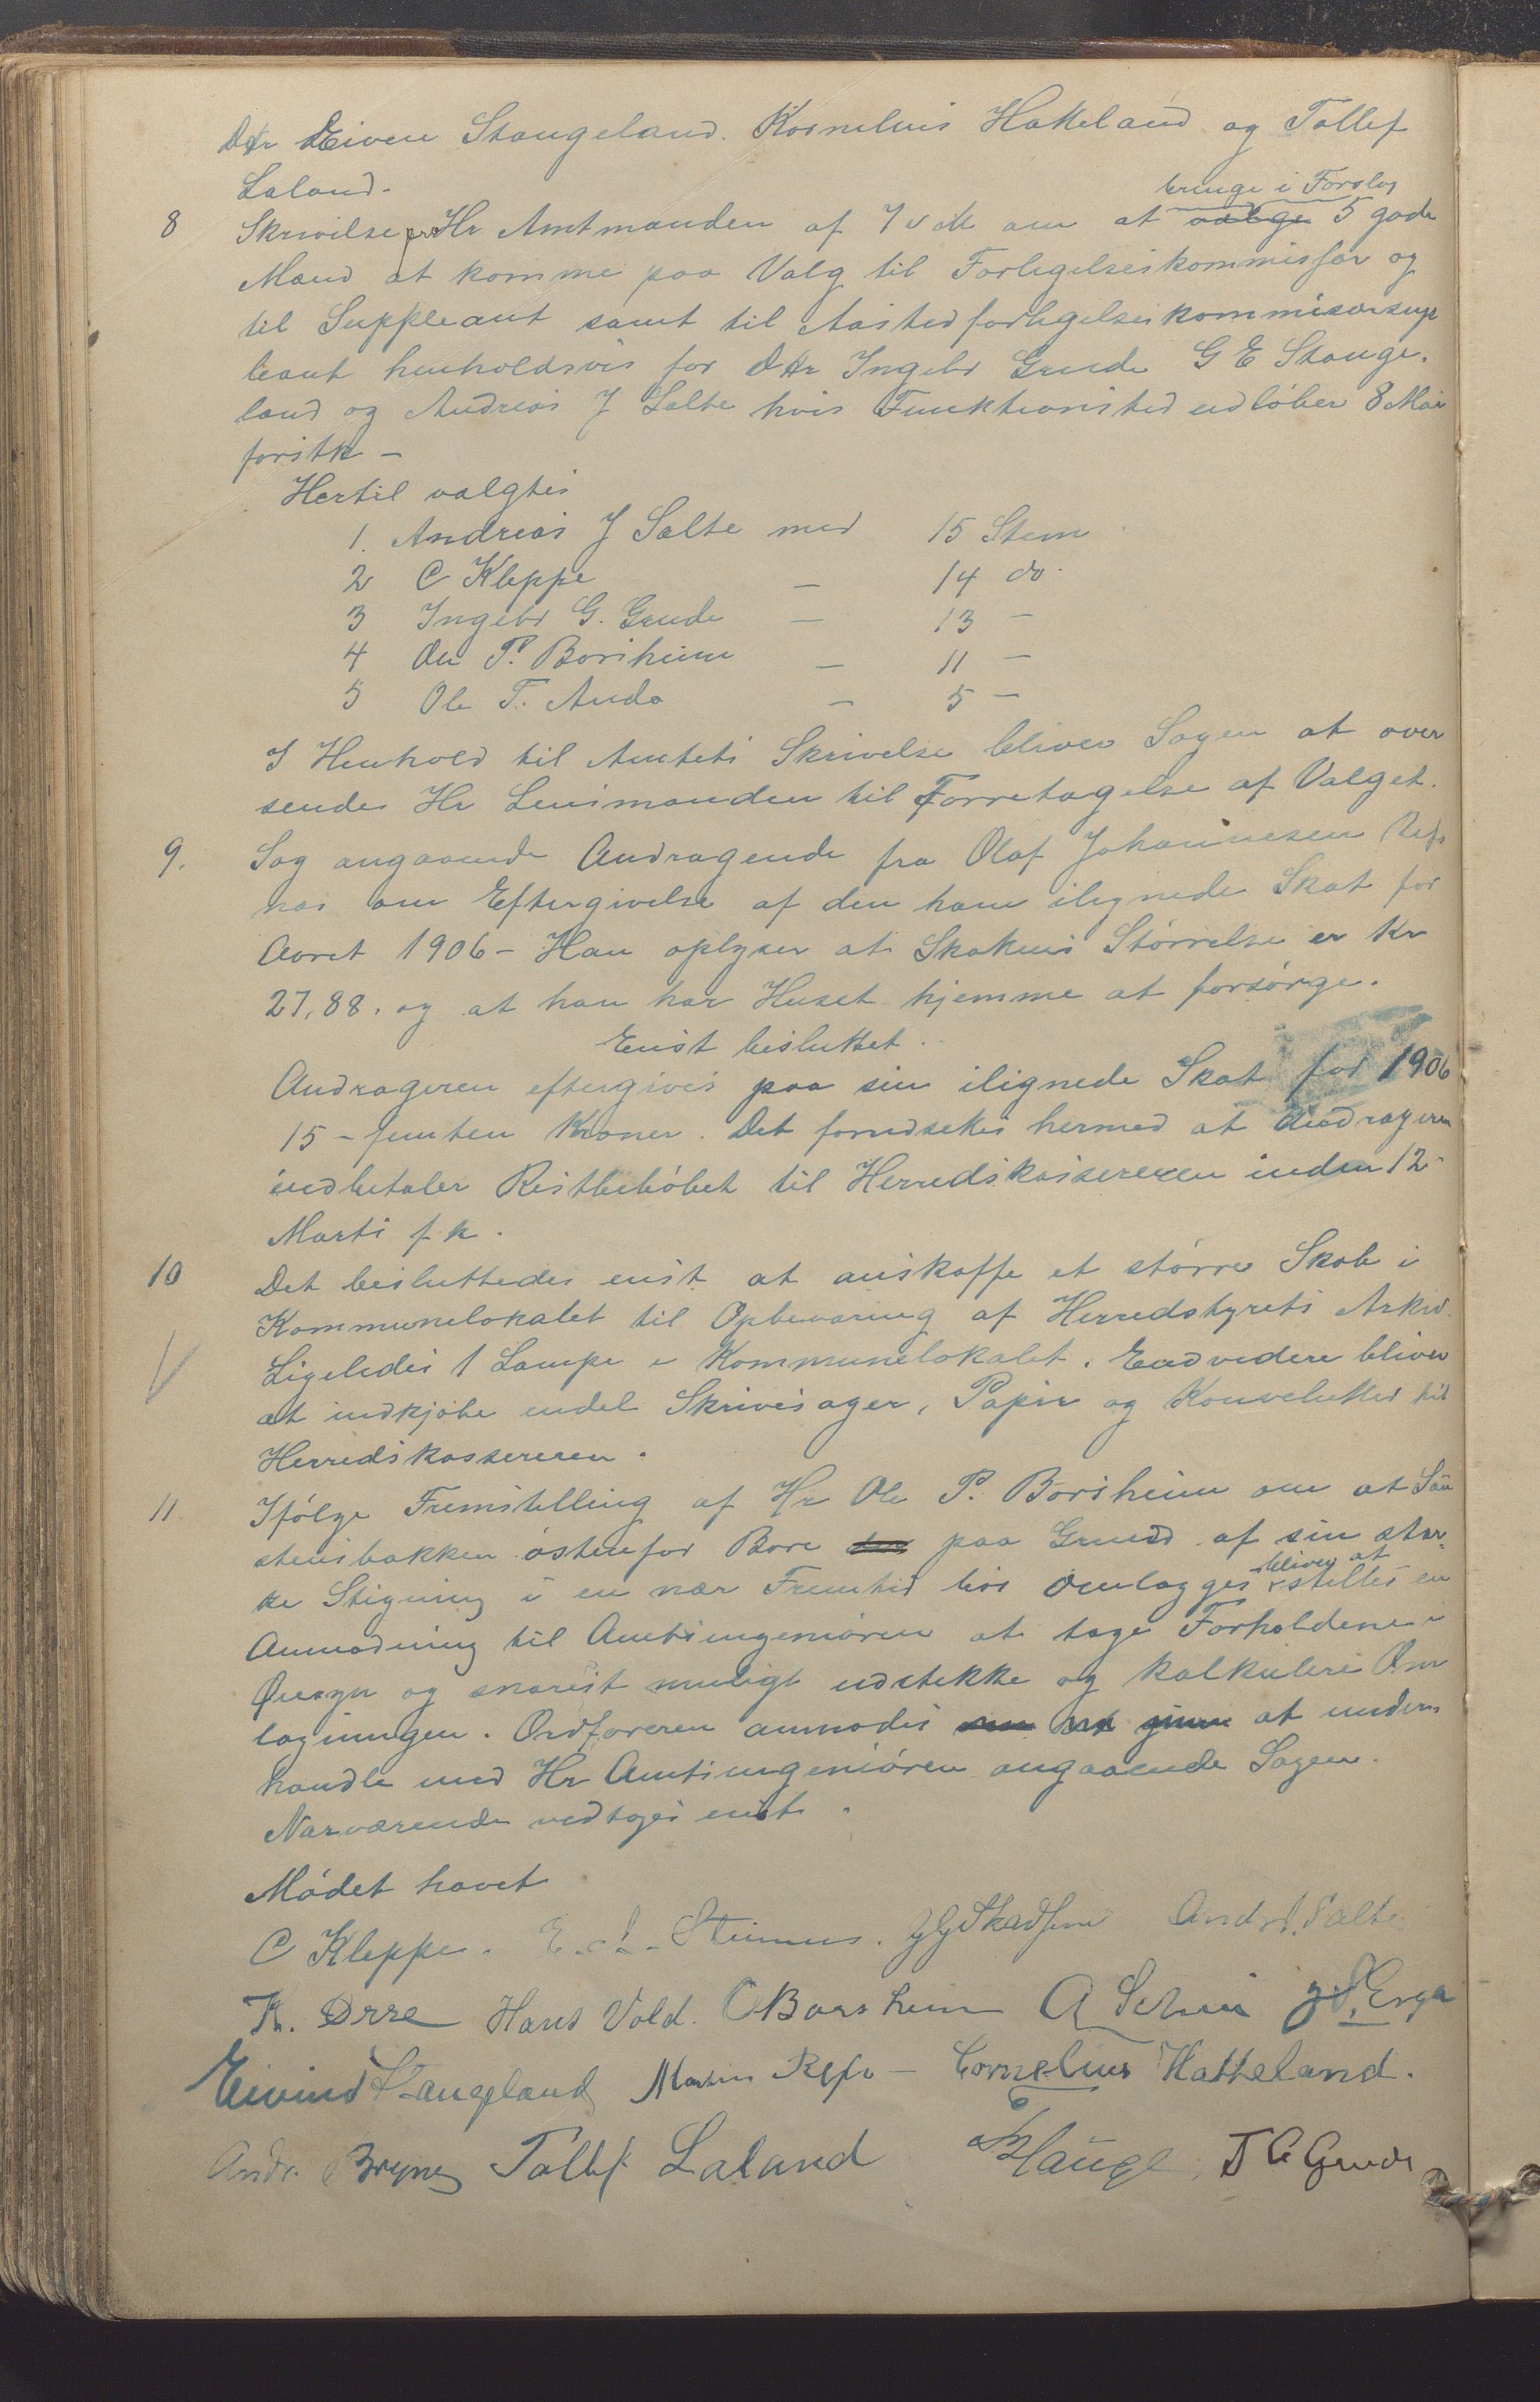 DHr Eiven Stangeland. Kornelius Hakeland og Tollef
Laland.
bringe i Forslag
8 Skrivelse fra Hr Amtmanden af 7 d M om at vælge 5 gode
Mænd at komme paa Valg til Forligelseskommissær og
til Suppleant samt til Aastedforligelseskommisærsup
leant henholdsvis for DHr Ingebr Grude G E Stange-
land og Andreas J Salte hvis Funktionstid udløber 8 Mai
førstk -
Hertil valgtes
1. Andreas J Salte med 15 Stem
2 C Kleppe - 14 do.
3 Ingebr G. Grude - 13 -
4 Ole P. Borsheim - 11 -
5 Ole T. Anda - 5 -
I Henhold til Amtets Skrivelse bliver Sagen at over
sendes Hr Lensmanden til Forretagelse af Valget.
9. Sag angaaende Andragende fra Olaf Johannesen Refs
næs om Eftergivelse af den ham ilignede Skat for
Aaret 1906 - Han oplyser at Skatens Størrelse er Kr
27,88. og at han har Huset hjemme at forsørge.
Enst besluttet.
Andrageren eftergives paa sin ilignede Skat for 1906
15 - femten Kroner. Det forudsættes hermed at Andrageren
indbetaler Restbeløbet til Herredskassereren inden 12
Marts f.k.
10 Det besluttedes enst. at anskaffe et større Skab i
Kommunelokalet til Opbevaring af Herredstyrets Arkiv.
Ligeledes 1 Lampe i Kommunelokalet. Endvidere bliver
at indkjøbe endel Skrivesager, Papir og Konvolutter til
Herredskassereren.
11. Ifølge Fremstilling af Hr Ole P. Borsheim om at
stensbakken østenfor Bore paa Grund af sin stær-
ke Stigning i en nær Fremtid bør omlægges bliver at stilles en
Anmodning til Amtsingeniøren at tage Forholdene i
Øiesyn og snarest muligt udstikke og kalkulere Om
lægningen. Ordføreren anmodes at under-
handle med Hr Amtsingeniøren angaaende Sagen.
Nærværende vedtages enst.
Mødet hævet
C Kleppe. Andr. J. Salte
K. Orre Hans Vold. O Borsheim
Eivind Stangeland Cornelius Hatteland.
Andr. Bryne Tollef Laland Hauge